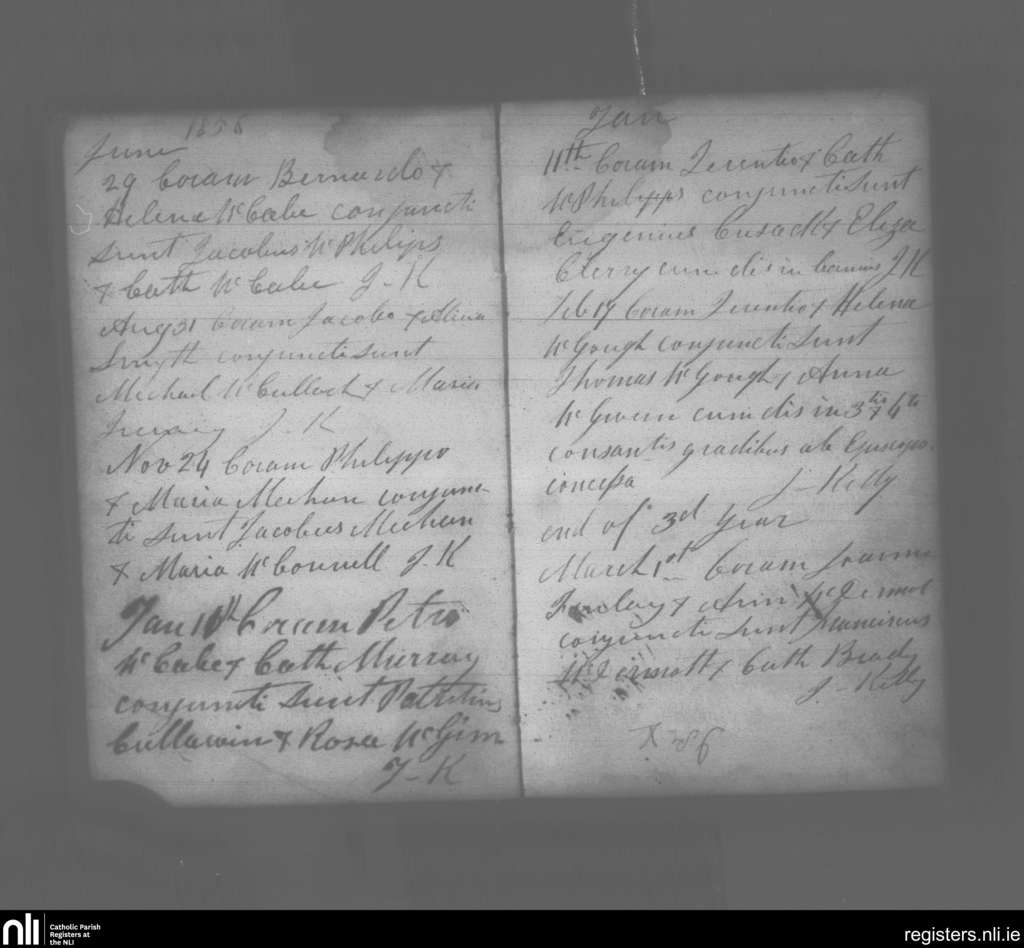 1856
June
29 Coram Bernardo &
Helena McCabe conjuncti
sunt Jacobus McPhilips
& Cath McCabe J-K
Aug 31 Coram Jacobo &
Smyth conjuncti sunt
Michael McCulloch & Maria
J K
Nov 24 Coram Philippo
& Maria Meehan conjunc-
ti sunt Jacobus Meehan
& Maria McConnell J.K
Jan Coram Petro
McCabe & Cath Murray
conjuncti sunt
& Rosa
J-K
Jan
11th Coram Terentio & Cath
McPhilipps conjuncti sunt
Eugenius Cusack & Eliza
Clerry cum dis in bannis J K
Feb 19 Coram Terentio & Helena
McGough conjuncti sunt
Thomas McGough & Anna
cum dis in 3tio & 4to
gradibus ab Episcopo
concessa J-Kelly
end of 3d year
March 1st Coram Joanne
Finlay & Ann McDermot
conjuncti sunt Franciscus
McDermott & Cath Brady
J-Kelly
nli
Catholic Parish
Registers at
the NLI
registers.nli.ie